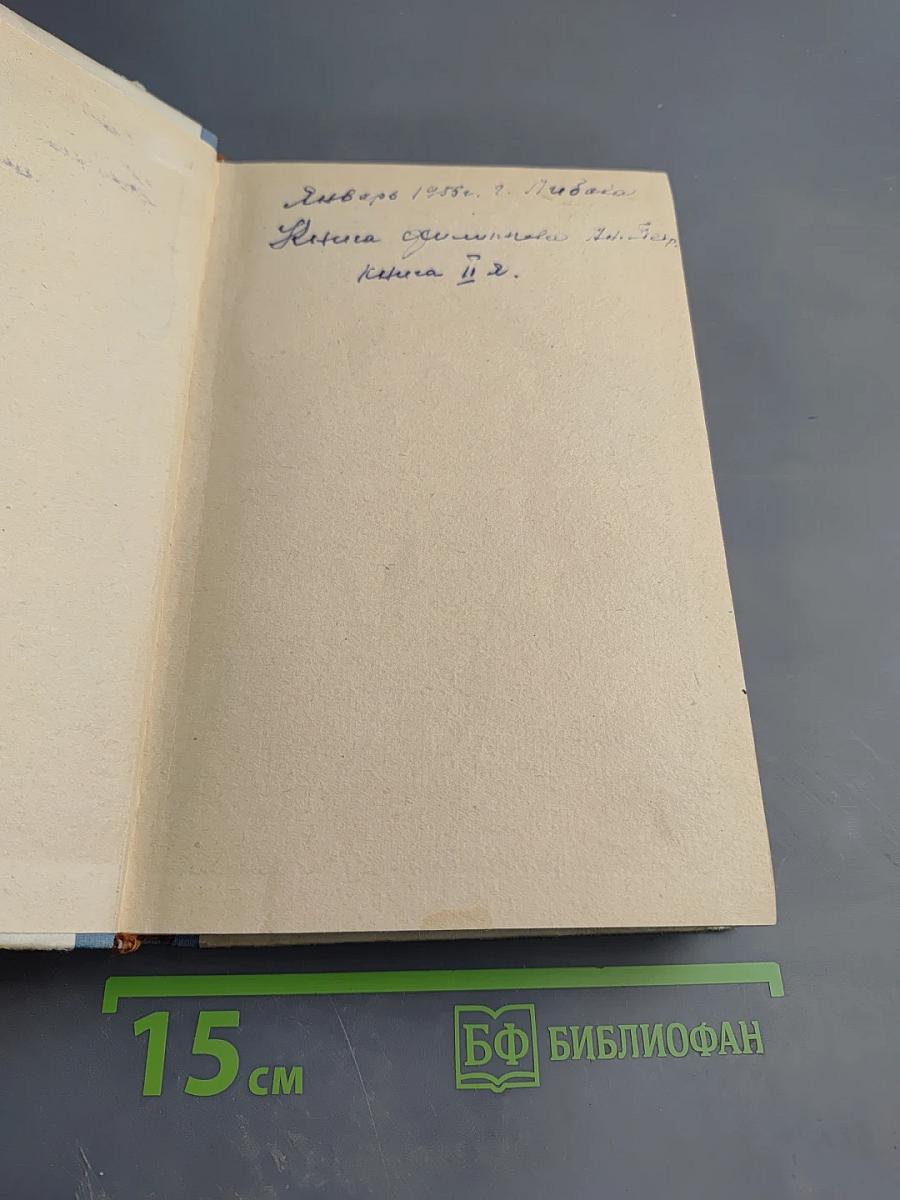 Январь 1956г. г. Либава
Книга Филиппова Ан. Петр.
книга II я.
15 см
БФ БИБЛИОФАН